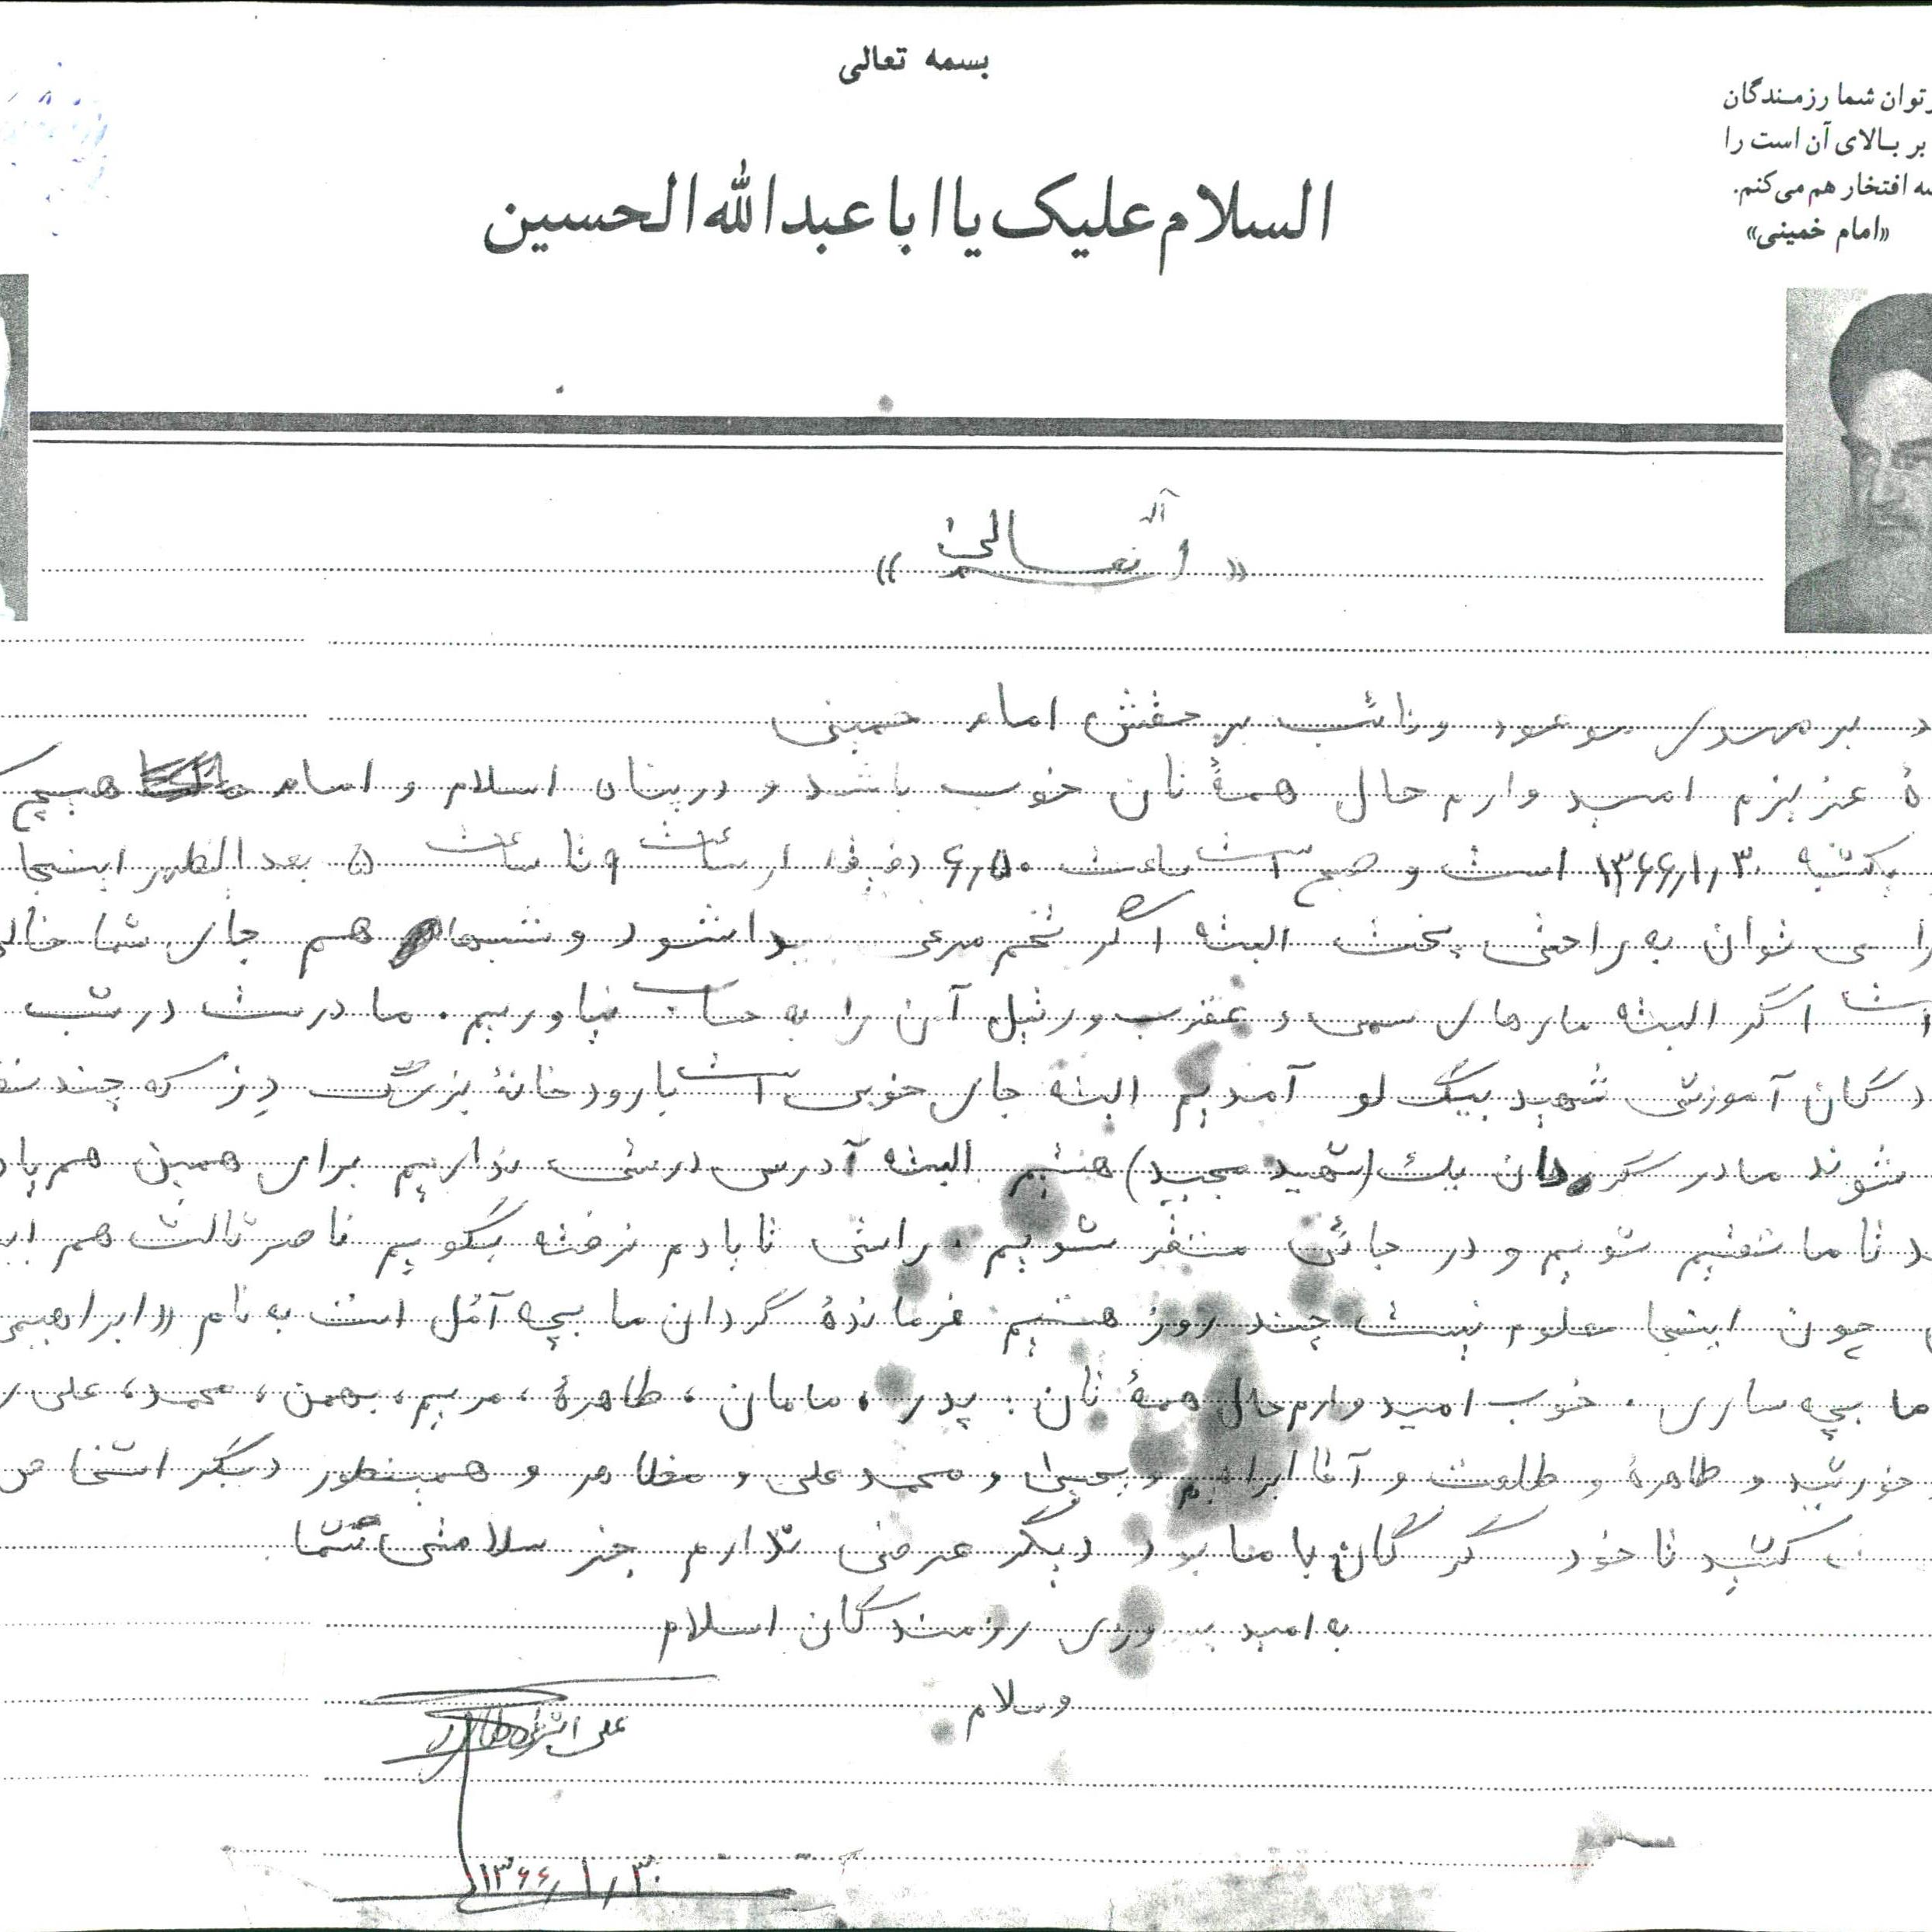 بسمه تعالی
توان شما رزمندگان
بر بالای آن است را
افتخار هم می‌کنم.
«امام خمینی»
السلام علیک یا ابا عبدالله الحسین
د بر مهدی موعود و نائب بر حقش امام خمینی
هٔ عزیزم امیدوارم حال همهٔ تان خوب باشد و در پناه اسلام و امام
یکشنبه ۱۳۶۶/۱/۳۰ است و صبح است ساعت ۶/۵۰ دقیقه از ساعت ۹ تا ساعت ۵ بعدالظهر اینجا
را می توان به راحتی پخت البته اگر تخم مرغی پیدا شود و شبها هم جای شما خالی
است اگر البته مارهای سمی و عقرب و رتیل آن را به حساب نیاوریم. ما درست در شب
آموزشی شهید بیگ لو آمدیم البته جای خوبی است با رودخانهٔ بزرگ دِز که چند نفر
شوند ما در گردان یک (شهید مجید) هستیم البته آدرس درستی نداریم برای همین هم
تا ما تقسیم شویم و در جائی مستقر شویم. راستی تا یادم نرفته بگویم ناصر ثالث هم
چون اینجا معلوم نیست چند روز هستیم فرماندهٔ گردان ما بچه آمل است به نام «ابراهیمی
ما بچه ساری. خوب امیدوارم حال همهٔ تان: پدر، مامان، طاهرهٔ، مریم، بهمن، محمد، علی
خورشید و طاهرهٔ و طلعت و آقا ابراهیم و یحیی و محمد علی و مظاهر و همینطور دیگر اشخاص
کنید تا خود گرگان با ما بود دیگر عرضی ندارم جز سلامتی شما
به امید پیروزی رزمندگان اسلام
وسلام
۱۳۶۶/۱/۳۰